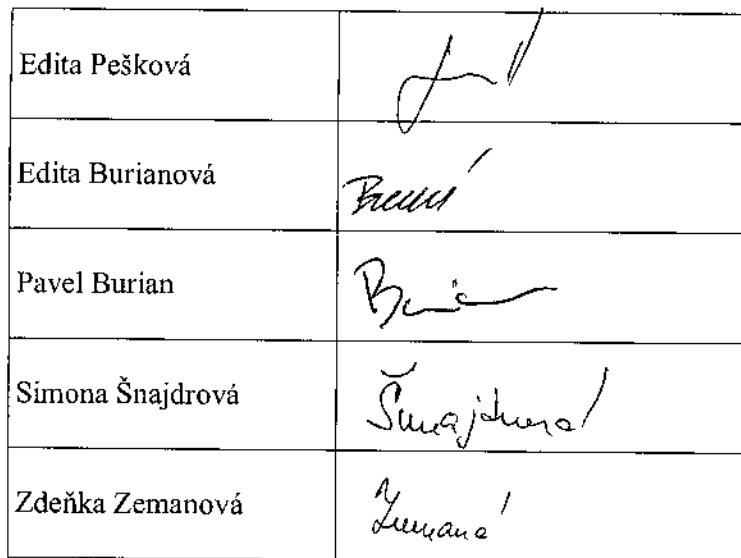 Edita Pešková
Edita Burianová
Pavel Burian
Simona Šnajdrová
Šnajdrová
Zdeňka Zemanová
Zemanová